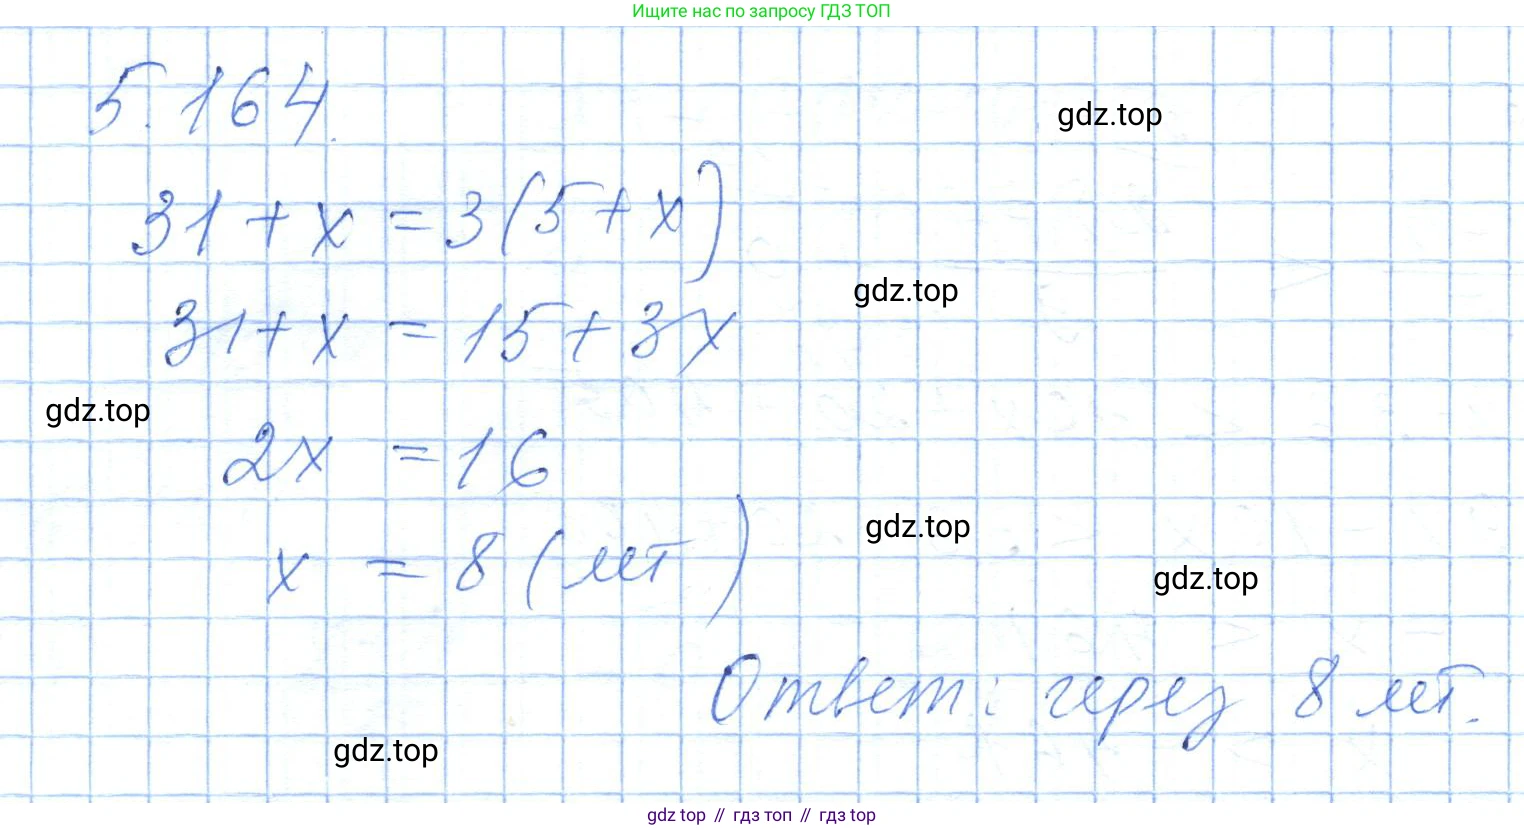 Ищите нас по запросу ГДЗ ТОП
5.164.
gdz.top
31 + x = 3(5 + x)
gdz.top
31 + x = 15 + 3x
gdz.top
2x = 16
gdz.top
x = 8 (лет)
gdz.top
Ответ: через 8 лет.
gdz.top
gdz top // гдз топ // гдз top